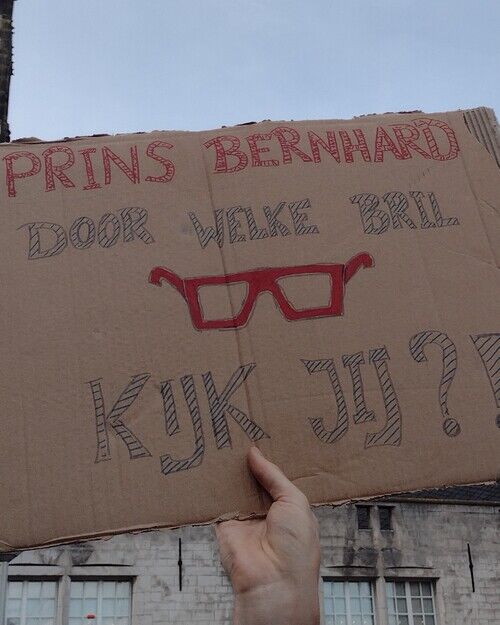 PRINS BERNHARD
DOOR WELKE BRIL
KIJK JIJ?!